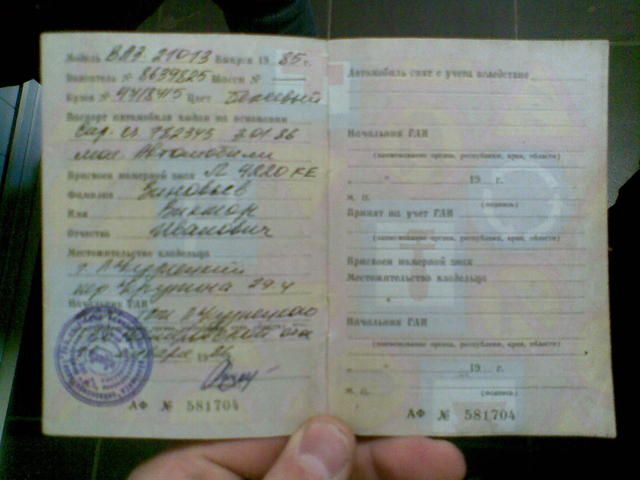 Модель ВАЗ 21013 Выпуск 1985 г.
Двигатель № 8639825 Шасси №
Кузов № 4418415 Цвет Бежевый
Паспорт автомобиля выдан на основании
782345 3.01.86
маг. Автомобили
Присвоен номерной знак Л 4820 КЕ
Фамилия Зиновьев
Имя Виктор
Отчество Иванович
Местожительство владельца
29 4
Начальник ГАИ
19
АФ № 581704
Автомобиль снят с учета вследствие
Начальник ГАИ
(наименование органа, республики, края, области)
" " 19 г.
М. П. (подпись)
Принят на учет ГАИ
(наименование органа, республики, края, области)
Присвоен номерной знак
Местожительство владельца
Начальник ГАИ
(наименование органа, республики, края, области)
" " 19 г.
М. П. (подпись)
АФ № 581704